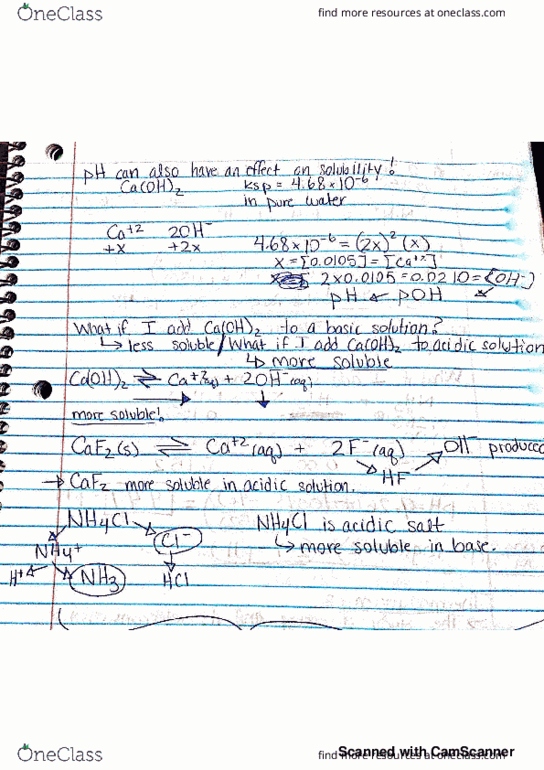 OneClass
find more resources at oneclass.com
pH can also have an effect on solubility!
Ca(OH)₂ ksp = 4.68×10⁻⁶
in pure water
Ca⁺² 2OH⁻
+x +2x
4.68×10⁻⁶ = (2x)² (x)
x = [0.0105] = [Ca⁺²]
2×0.0105 = 0.0210 = [OH⁻]
pH ← pOH ↙
What if I add Ca(OH)₂ to a basic solution?
↳ less soluble / What if I add Ca(OH)₂ to acidic solution
↳ more soluble
Ca(OH)₂ ⇌ Ca⁺²(aq) + 2OH⁻(aq)
→ ↓
more soluble!
CaF₂(s) ⇌ Ca⁺²(aq) + 2F⁻(aq) OH⁻ produced
↘ HF ↗
→ CaF₂ more soluble in acidic solution.
NH4Cl NH4Cl is acidic salt
Cl⁻ ↳ more soluble in base.
NH4⁺
H⁺ NH3 HCl
OneClass
find more resources at oneclass.com
Scanned with CamScanner